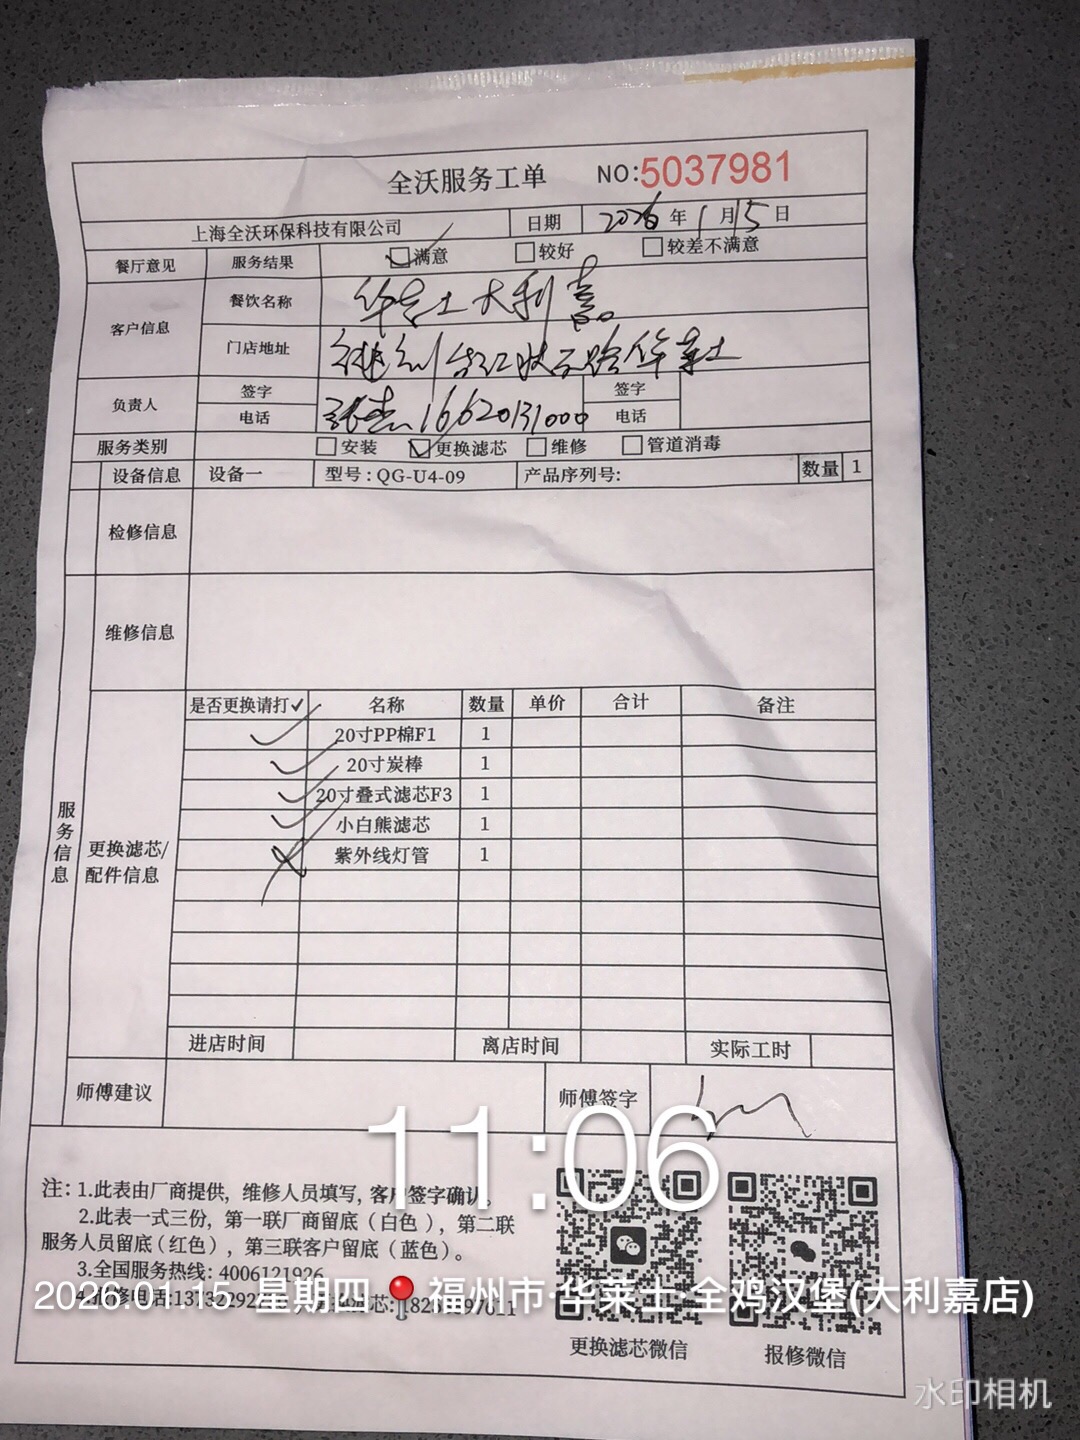 全沃服务工单 NO:5037981
上海全沃环保科技有限公司 日期 2026年1月15日
餐厅意见 服务结果 满意 较好 较差不满意
客户信息 餐饮名称 华莱士大利嘉
门店地址 台江 路华莱士
负责人 签字 张 签字
电话 16620131000 电话
服务类别 安装 更换滤芯 维修 管道消毒
设备信息 设备一 型号:QG-U4-09 产品序列号: 数量 1
检修信息
维修信息
服务信息
更换滤芯/
配件信息
是否更换请打✓ 名称 数量 单价 合计 备注
✓ 20寸PP棉F1 1
✓ 20寸炭棒 1
✓ 20寸叠式滤芯F3 1
✓ 小白熊滤芯 1
紫外线灯管 1
进店时间 离店时间 实际工时
师傅建议 师傅签字
11:06
注:1.此表由厂商提供,维修人员填写,客户签字确认。
2.此表一式三份,第一联厂商留底(白色),第二联
服务人员留底(红色),第三联客户留底(蓝色)。
3.全国服务热线:4006121926
2026.01.15 星期四 福州市·华莱士·全鸡汉堡(大利嘉店)
更换滤芯微信 报修微信
水印相机